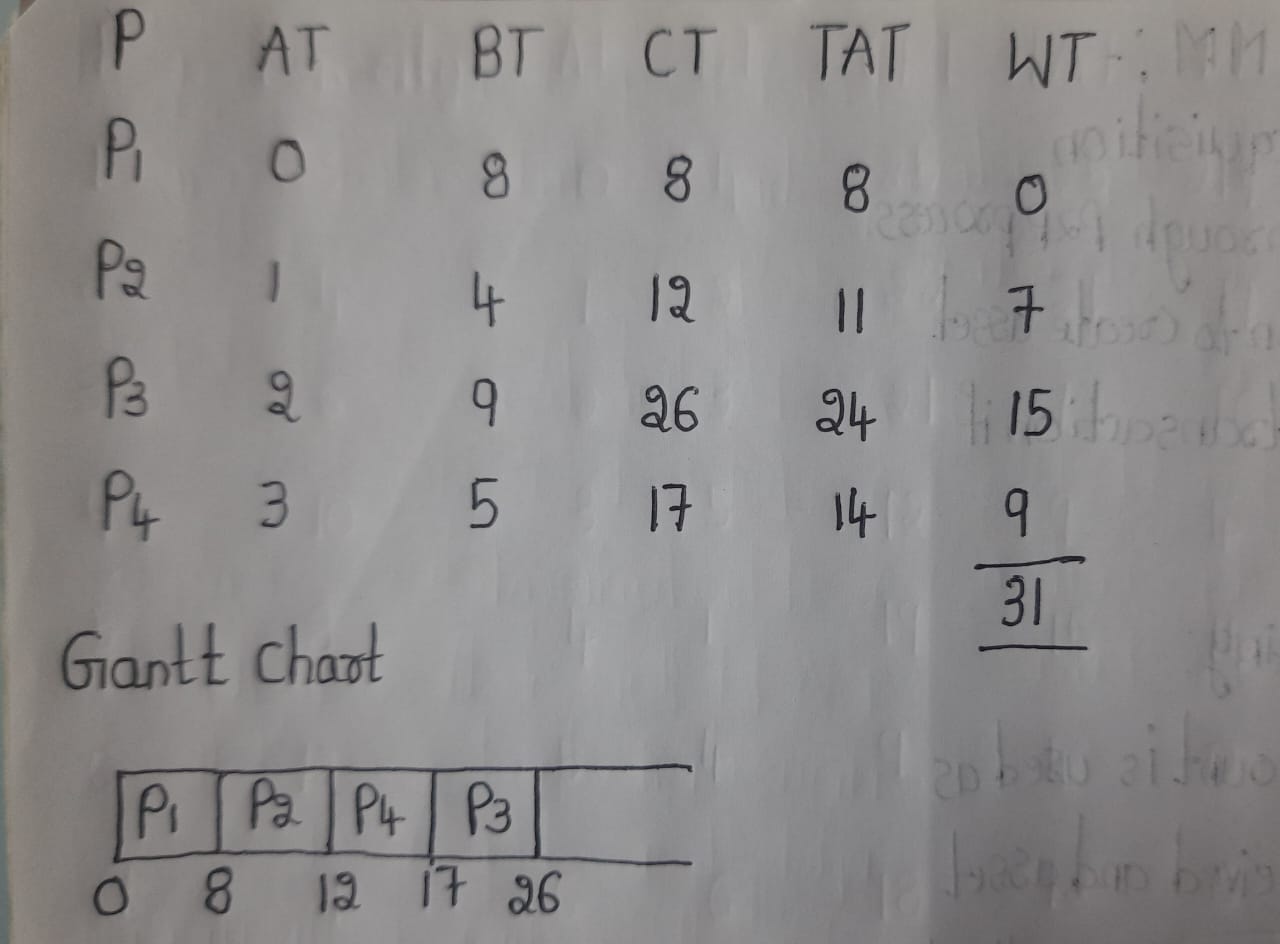 P AT BT CT TAT WT
P1 0 8 8 8 0
P2 1 4 12 11 7
P3 2 9 26 24 15
P4 3 5 17 14 9
31
Gantt Chart
P1 P2 P4 P3
0 8 12 17 26